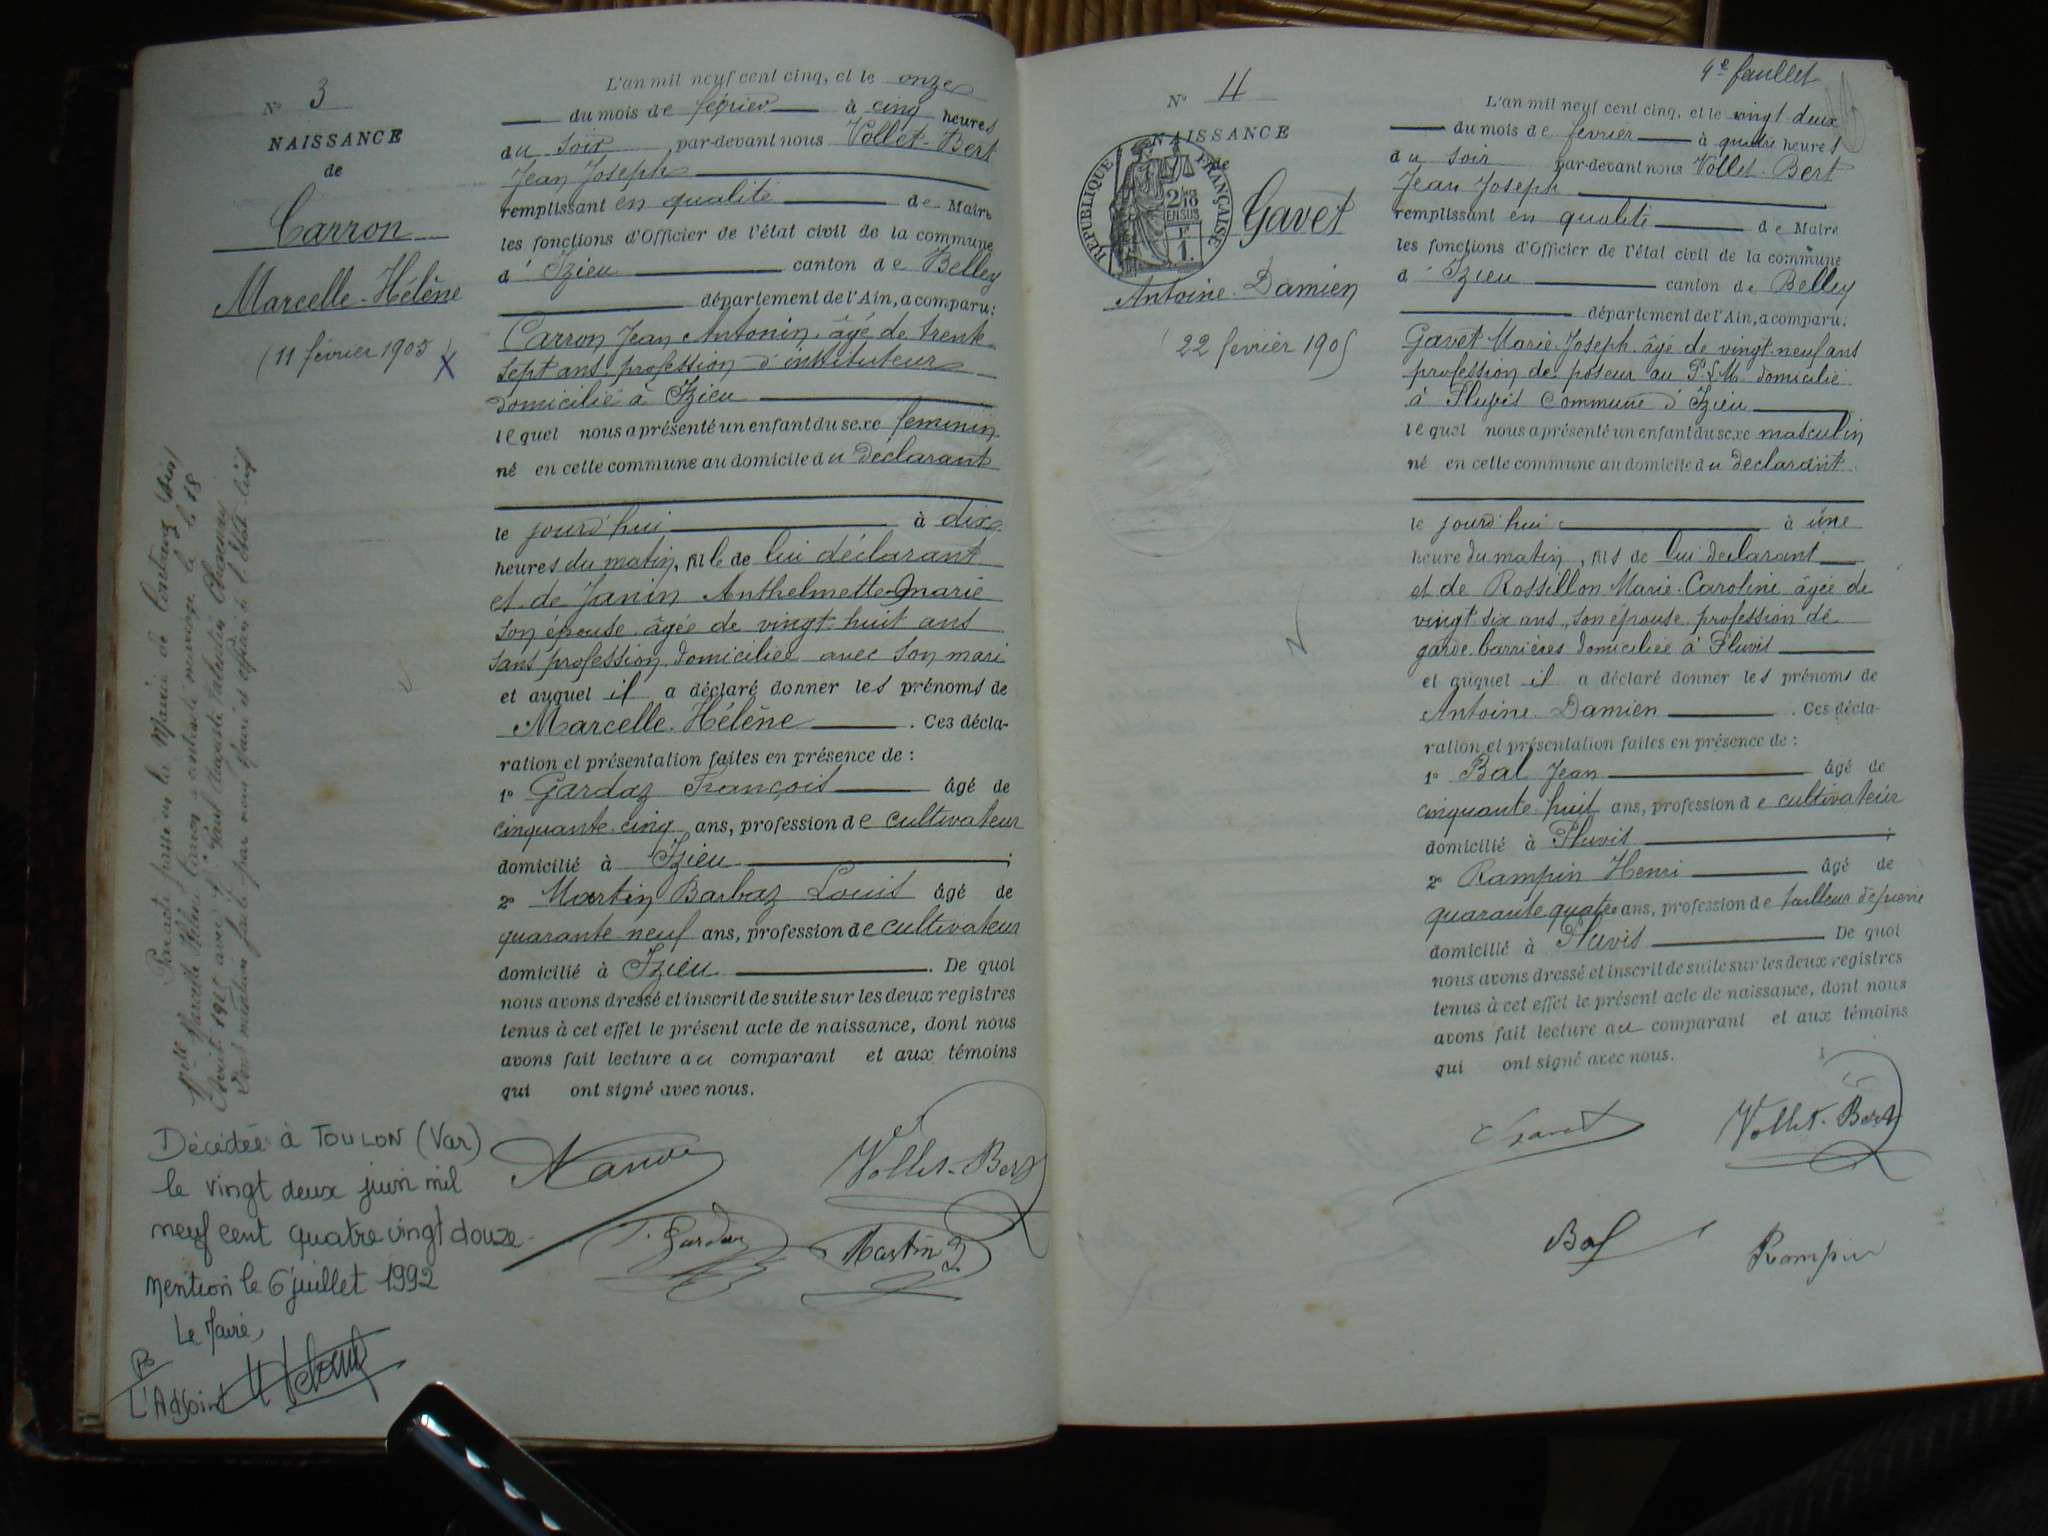 N° 3
NAISSANCE
de
Carron
Marcelle-Hélène
(11 février 1905)
X
L'an mil neuf cent cinq, et le onze
du mois de février à cinq heures
du soir par-devant nous Vollet-Bert
Jean Joseph
remplissant en qualité de Maire
les fonctions d'Officier de l'état civil de la commune
d' Izieu canton de Belley
département de l'Ain, a comparu:
Carron Jean Antonin âgé de trente
sept ans profession d'instituteur
domicilié à Izieu
lequel nous a présenté un enfant du sexe féminin
né en cette commune au domicile du déclarant
le jourd'hui à dix
heures du matin, fille de lui déclarant
et de Janin Anthelmette Marie
son épouse âgée de vingt huit ans
sans profession domiciliée avec son mari
et auquel il a déclaré donner les prénoms de
Marcelle-Hélène. Ces décla-
ration et présentation faites en présence de :
1° Gardaz François âgé de
cinquante cinq ans, profession de cultivateur
domicilié à Izieu ;
2° Martin Barbaz Louis âgé de
quarante neuf ans, profession de cultivateur
domicilié à Izieu. De quoi
nous avons dressé et inscrit de suite sur les deux registres
tenus à cet effet le présent acte de naissance, dont nous
avons fait lecture au comparant et aux témoins
qui ont signé avec nous.
Vollet-Bert
F. Gardaz
Martin
Par acte passé en la Mairie de
Melle Marcelle Hélène Carron a contracté mariage le 18
avec Mr Paul Auguste Valentin
Dont mention faite par nous Maire et officier de l'état civil
Décédée à TOULON (Var)
le vingt deux juin mil
neuf cent quatre vingt douze
mention le 6 juillet 1992
Le Maire,
Po
L'Adjoint
4e feuillet
N° 4
NAISSANCE
de
RÉPUBLIQUE FRANÇAISE
2/10
EN SUS
1F
Gavet
Antoine-Damien
(22 février 1905)
L'an mil neuf cent cinq, et le vingt-deux
du mois de février à quatre heures
du soir par-devant nous Vollet-Bert
Jean Joseph
remplissant en qualité de Maire
les fonctions d'Officier de l'état civil de la commune
d' Izieu canton de Belley
département de l'Ain, a comparu:
Gavet Marie-Joseph âgé de vingt-neuf ans
profession de poseur au P.L.M. domicilié
à Pluvis commune d'Izieu
lequel nous a présenté un enfant du sexe masculin
né en cette commune au domicile du déclarant
le jourd'hui à une
heure du matin, fils de lui déclarant
et de Rossillon Marie-Caroline âgée de
vingt six ans, son épouse profession de
garde-barrières domiciliée à Pluvis
et auquel il a déclaré donner les prénoms de
Antoine-Damien. Ces décla-
ration et présentation faites en présence de :
1° Bal Jean âgé de
cinquante-huit ans, profession de cultivateur
domicilié à Pluvis ;
2° Rampin Henri âgé de
quarante quatre ans, profession de tailleur de pierre
domicilié à Pluvis De quoi
nous avons dressé et inscrit de suite sur les deux registres
tenus à cet effet le présent acte de naissance, dont nous
avons fait lecture au comparant et aux témoins
qui ont signé avec nous.
Gavet
Vollet-Bert
Bal
Rampin